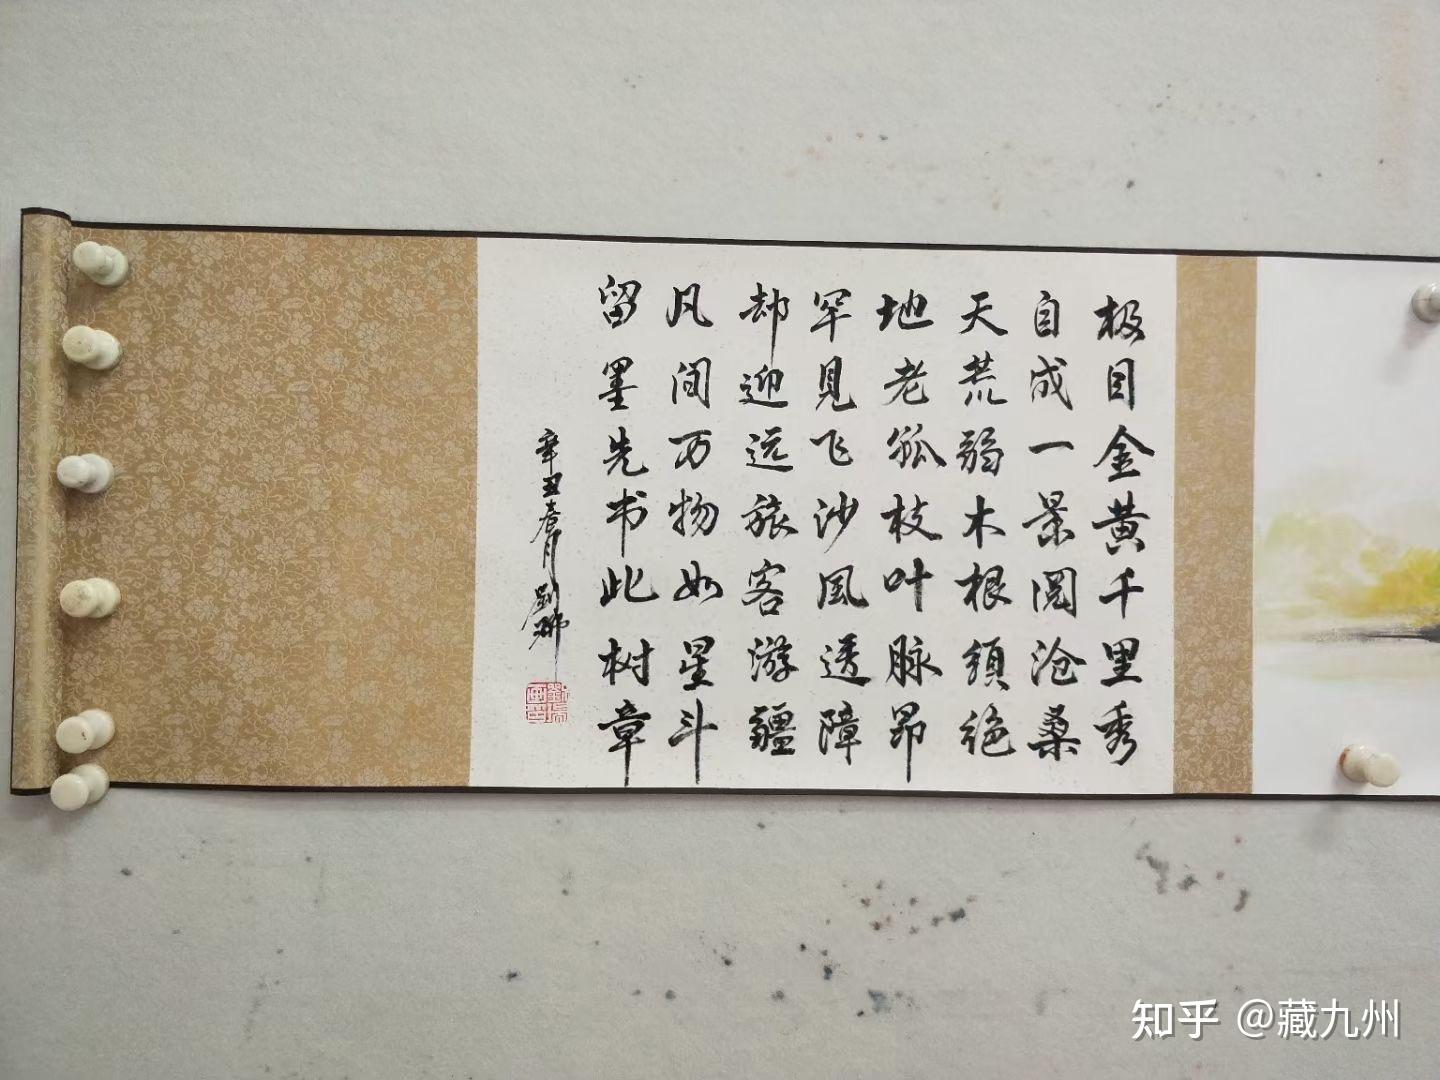 极目金黄千里秀
自成一景阅沧桑
天荒弱木根须绝
地老孤枝叶脉昂
罕见飞沙风透障
却迎远旅客游疆
凡间万物如星斗
留墨先书此树章
辛丑春月
知乎 @藏九州